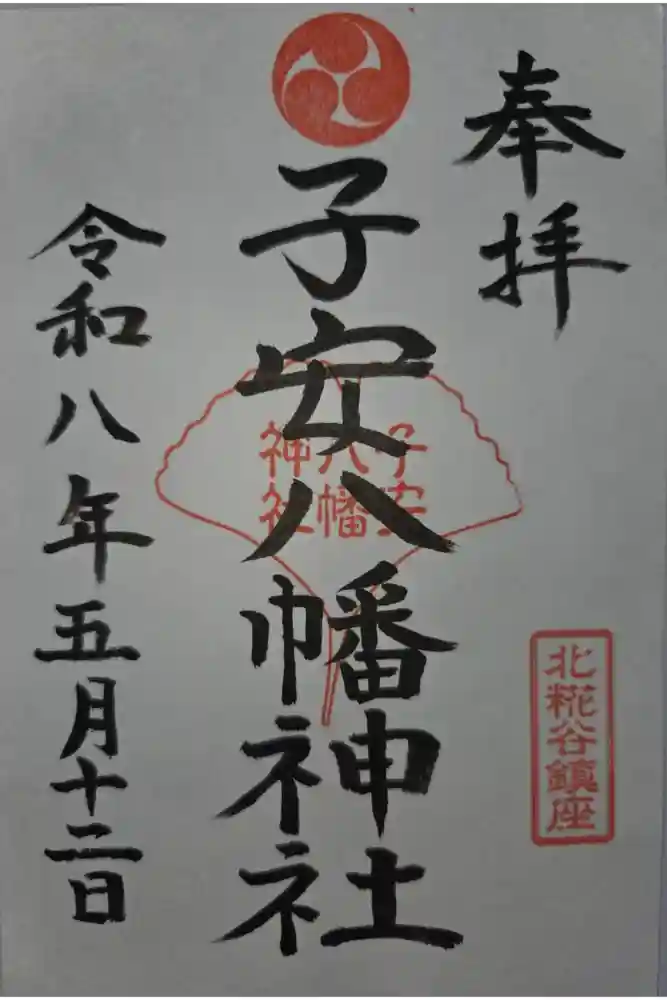 奉拝
北糀谷鎮座
子安八幡神社
子安
八幡
神社
令和八年五月十二日